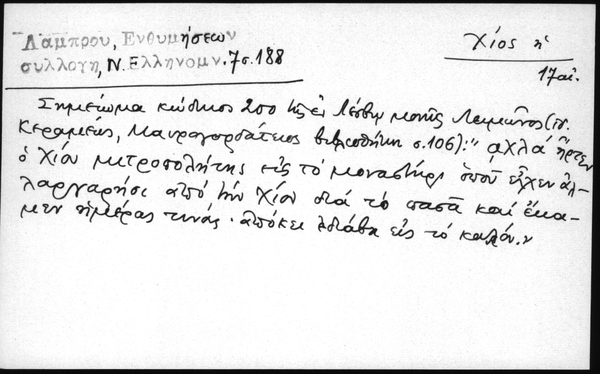 Λάμπρου, Ενθυμήσεων
συλλογή, Ν. Ελληνομν. 7 σ. 188
Χίος ἡ
17 αἰ.
Σημείωμα κώδικος 250 τῆς ἐν Λέσβῳ μονῆς Λειμῶνος (Π.
Κεραμεύς, Μαυρογορδάτειος βιβλιοθήκη σ. 106): "αχλα' ἦρτεν
ὁ Χίου μητροπολήτης εἰς τὸ μοναστήρι ὁποῦ εἶχεν ἀλ-
λαργαρήσι ἀπὸ τὴν Χίον διά τὸ πασᾶ καὶ ἔκα-
μεν ἡμέρας τινάς. ἀπόκει ἐδιάβη εἰς τὸ καλόν."